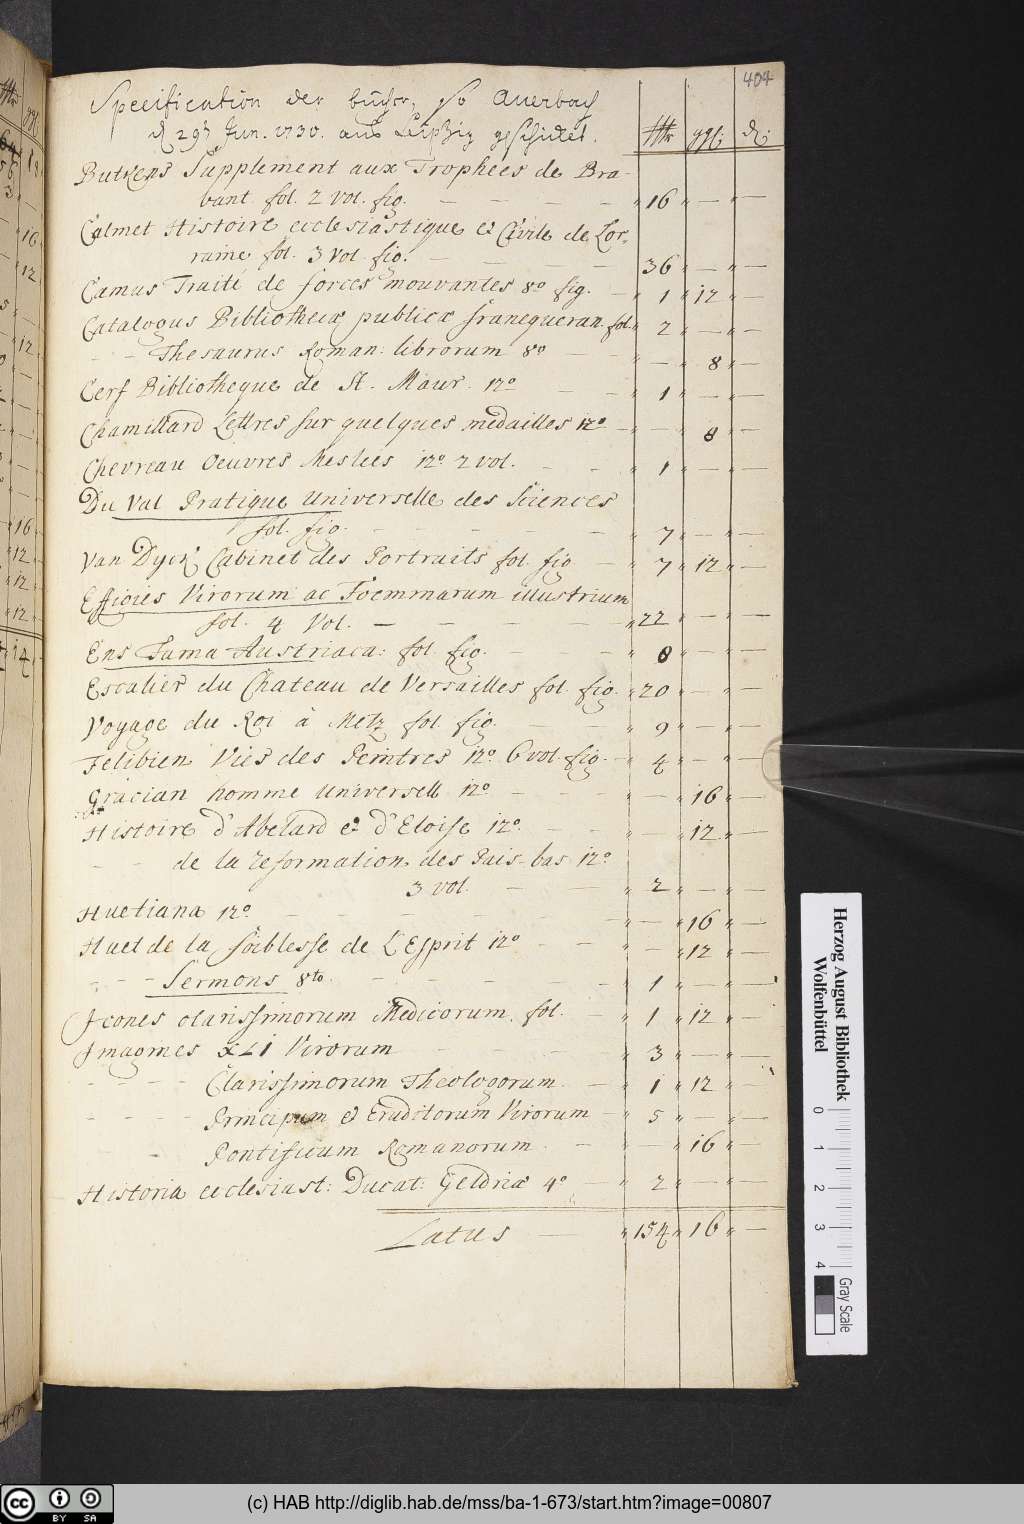 404
Specification der bücher, so Auerbach
d 29 Jun. 1730. aus Leipzig geschicket.
ggl: d:
Butkens Supplement aux Trophées de Bra-
bant. fol. 2 vol. fig. — — — — " 16 " — " —
Calmet Histoire ecclesiastique et Civile de Lor-
raine fol. 3 vol. fig. — — — — 36 " — " —
Camus Traité de forces mouvantes 8o fig. — " 1 " 12 " —
Catalogus Bibliothecæ publicæ franequeran. fol. " 2 " — " —
— — Thesaurus Roman: librorum 8o — " — " 8 " —
Cerf Bibliotheque de St. Maur. 12o — — " 1 " — " —
Chamillard Lettres sur quelques medailles 12o — " — " 8 " —
Chevreau Oeuvres Meslées 12o 2 vol. — — " 1 " — " —
Du Val Pratique Universelle des Sciences
fol. fig. — — — — — " 7 " — " —
Van Dyck Cabinet des Portraits fol. fig — " 7 " 12 " —
Effigies Virorum ac Foemmarum illustrium
fol. 4 Vol. — — — — — " 22 " — " —
Ens Fama Austriaca: fol. fig. — — — " 8 " — " —
Escalier du Chateau de Versailles fol. fig. " 20 " — " —
Voyage du Roi à Metz fol. fig. — — " 9 " — " —
Felibien Vies des Peintres 12o 6 vol. fig. — " 4 " — " —
Gracian homme Universell 12o — — — " — " 16 " —
Histoire d'Abelard et d'Eloise 12o. — — " — " 12 " —
— — de la reformation des Pais-bas 12o
3 vol. — — " 2 " — " —
Huetiana 12o. — — — — — " — " 16 " —
Huet de la foiblesse de L'Esprit 12o — — " — " 12 " —
— — Sermons 8to. — — — — " 1 " — " —
Icones clarissimorum Medicorum. fol. — " 1 " 12 " —
Imagines XLI Virorum — — — " 3 " — " —
— — — Clarissimorum Theologorum — " 1 " 12 " —
— — — Principum et Eruditorum Virorum — " 5 " — " —
— Pontificum Romanorum — " — " 16 " —
Historia ecclesiast: Ducat: Geldriæ 4o — " 2 " — " —
Latus — " 154 " 16 " —
Herzog August Bibliothek
Wolfenbüttel
0 1 2 3 4
Gray Scale
(c) HAB http://diglib.hab.de/mss/ba-1-673/start.htm?image=00807
cc BY SA